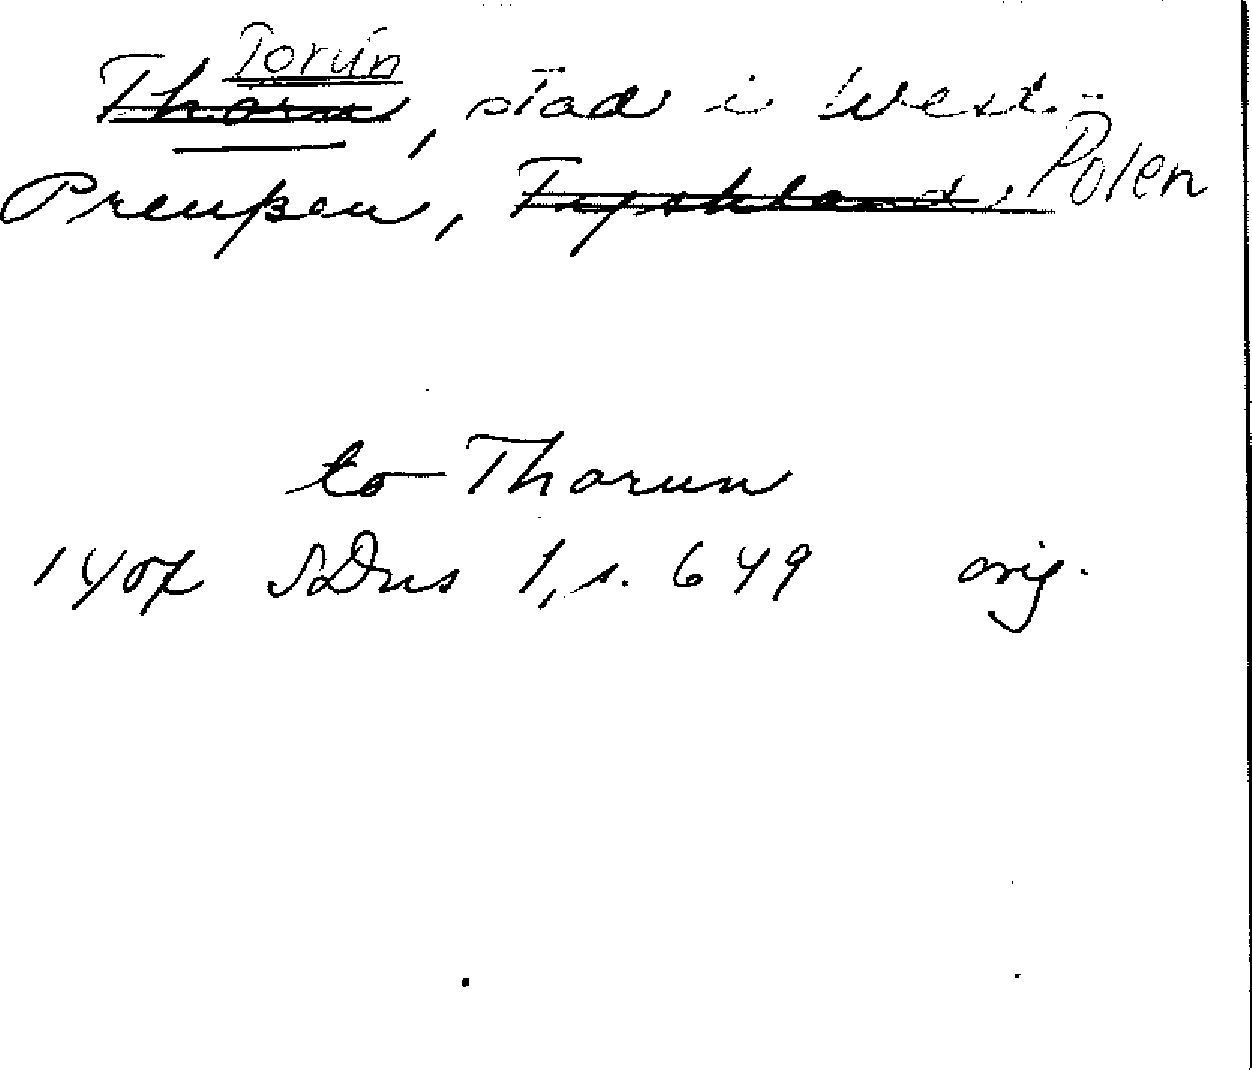 Toruń
Thorn, stad i West-
Preußen, Tyskland, Polen
to Thorun
1407 SDns 1, s. 649 orig.